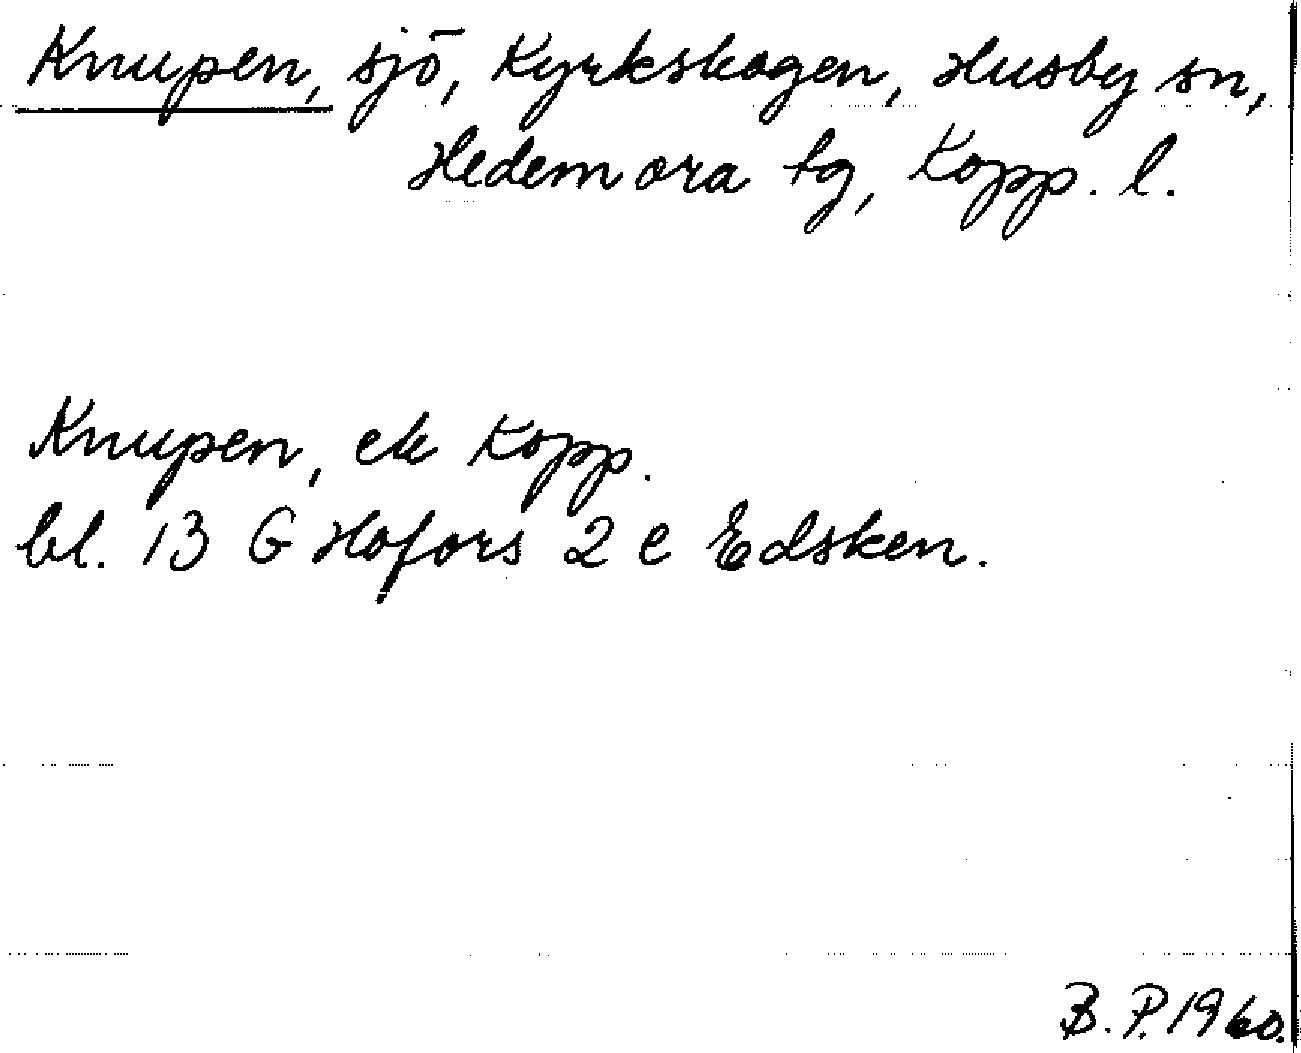 Knupen, sjö, Kyrkskogen, Husby sn,
Hedemora tg, Kopp. l.
Knupen, ek Kopp.
bl. 13 G Hofors 2 e Edsken.
B. P. 1960.